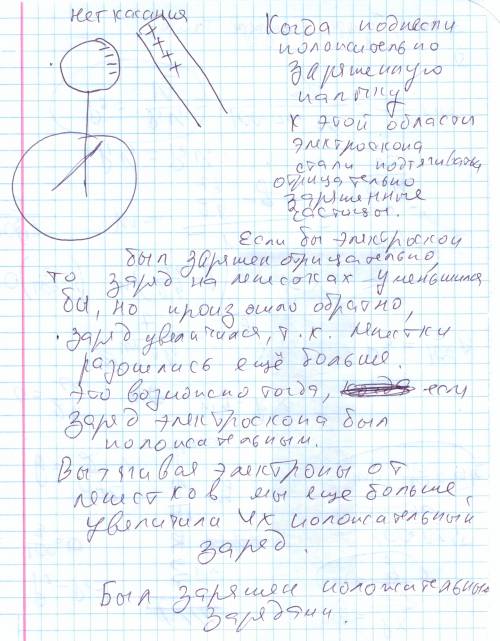 нет касания
Когда поднесли
положительно
заряженную
палочку
к этой области
электроскопа
стали подтягиваться
отрицательно
заряженные
частицы.
Если бы электроскоп
был заряжен отрицательно,
то заряд на лепестках уменьшился
бы, но произошло обратно,
заряд увеличился, т.к. лепестки
разошлись ещё больше.
Это возможно тогда, если
заряд электроскопа был
положительным.
Вытягивая электроны от
лепестков мы еще больше
увеличили их положительный
заряд.
Был заряжен положительными
зарядами.